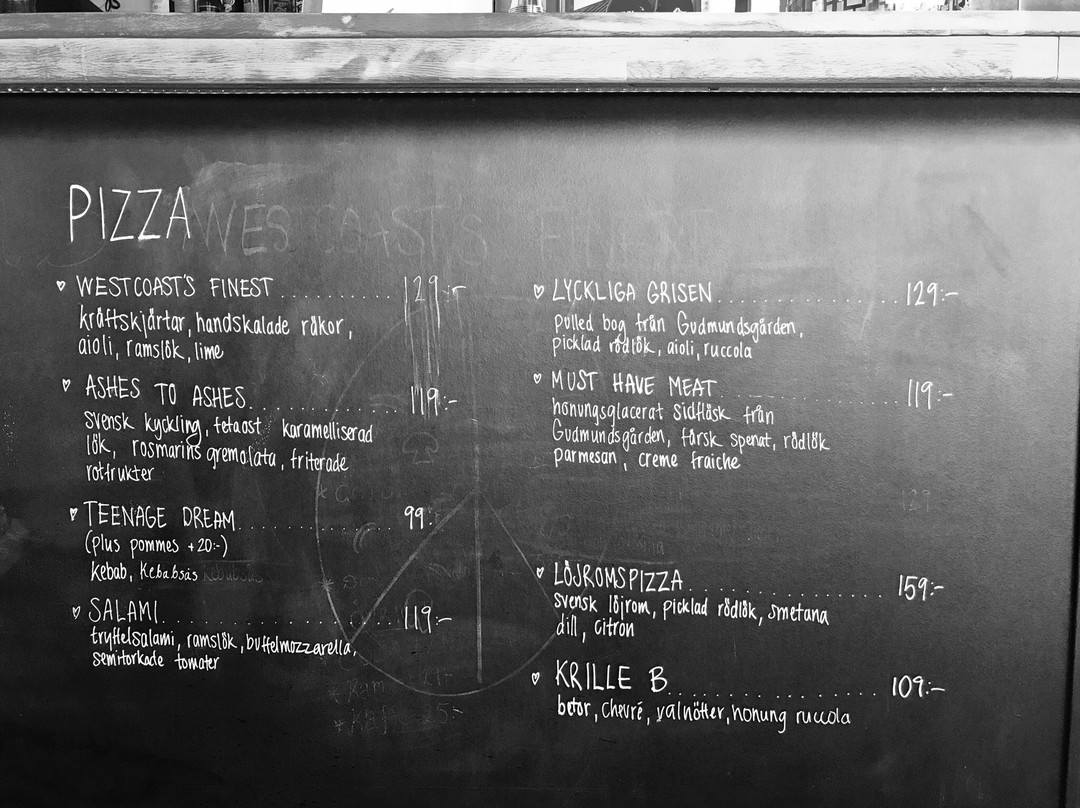 PIZZA
WESTCOAST'S FINEST 129:-
kräftskjärtar, handskalade räkor,
aioli, ramslök, lime
ASHES TO ASHES 119:-
svensk kyckling, fetaost karamelliserad
lök, rosmarins gremolata, friterade
rotfrukter
TEENAGE DREAM 99:-
(plus pommes +20:-)
kebab, kebabsås
SALAMI 119:-
tryffelsalami, ramslök, buffelmozzarella,
semitorkade tomater
LYCKLIGA GRISEN 129:-
pulled bog från Gudmundsgården,
picklad rödlök, aioli, ruccola
MUST HAVE MEAT 119:-
honungsglacerat sidfläsk från
Gudmundsgården, färsk spenat, rödlök
parmesan, creme fraiche
LÖJROMSPIZZA 159:-
svensk löjrom, picklad rödlök, smetana
dill, citron
KRILLE B 109:-
betor, chevré, valnötter, honung ruccola